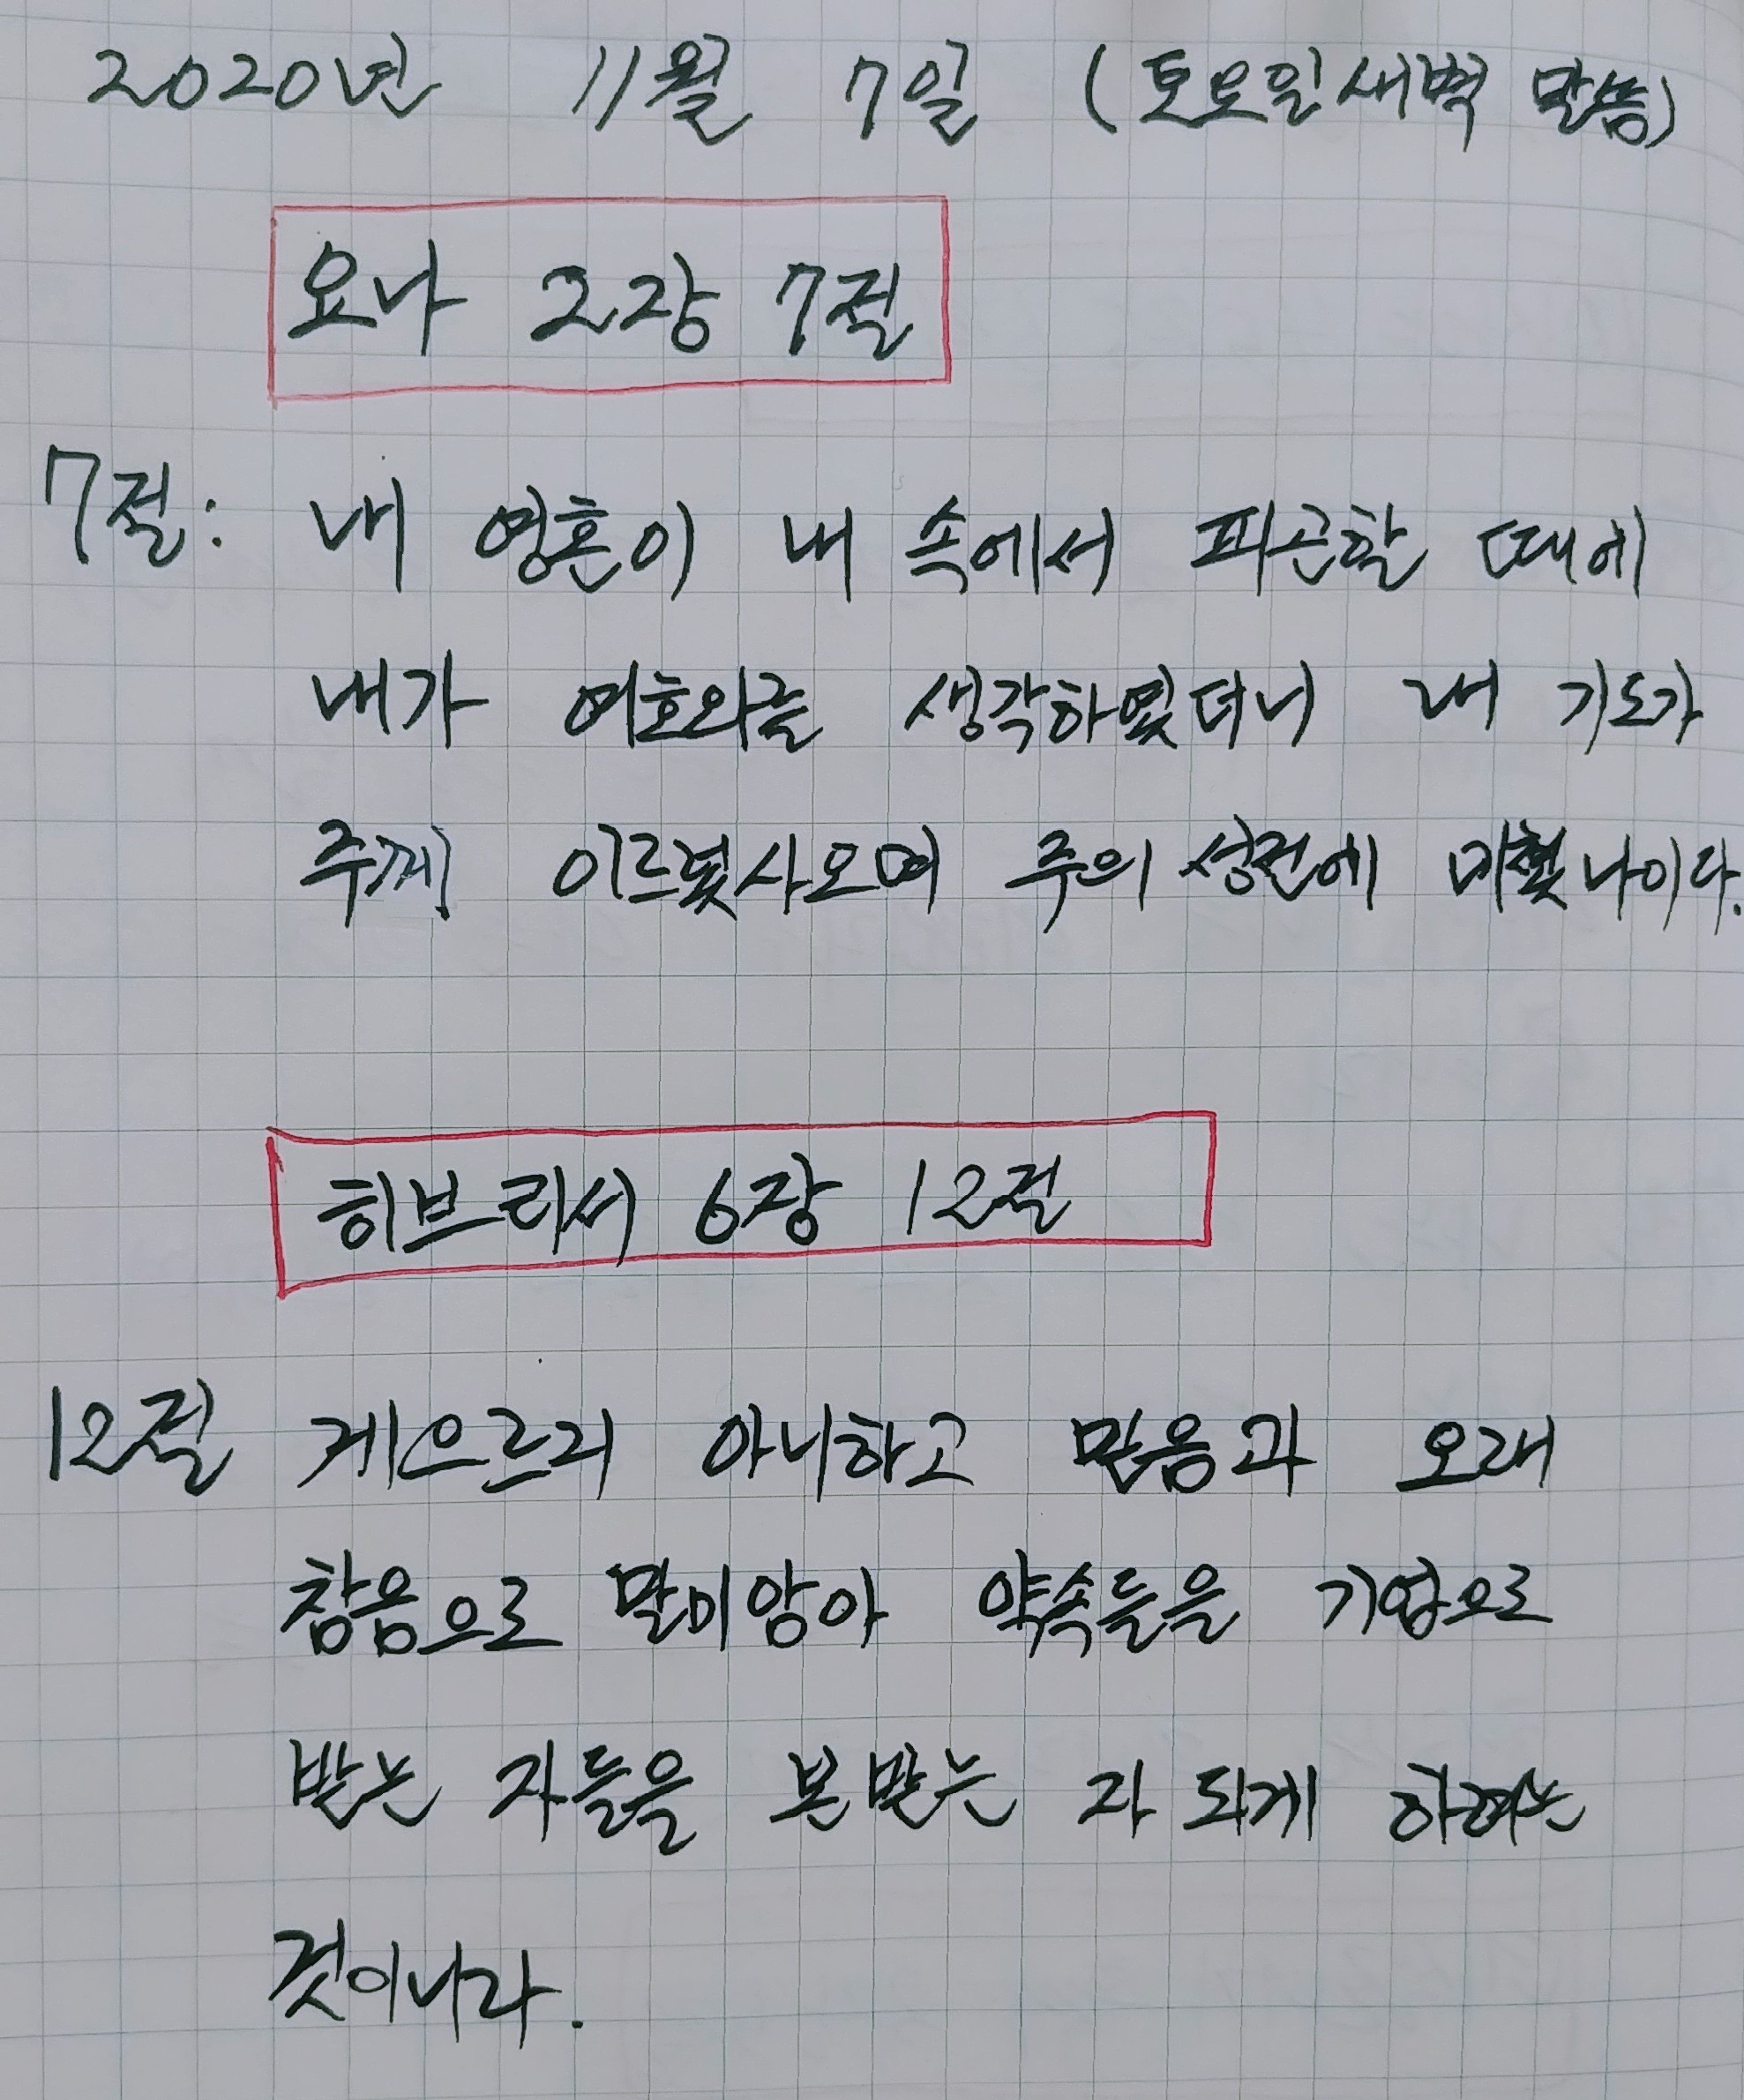 2020년 11월 7일 (토요일새벽 말씀)
요나 2장 7절
7절: 내 영혼이 내 속에서 피곤할 때에
내가 여호와를 생각하였더니 내 기도가
주께 이르렀사오며 주의 성전에 미쳤나이다.
히브리서 6장 12절
12절 게으르지 아니하고 믿음과 오래
참음으로 말미암아 약속들을 기업으로
받는 자들을 본받는 자 되게 하려는
것이니라.